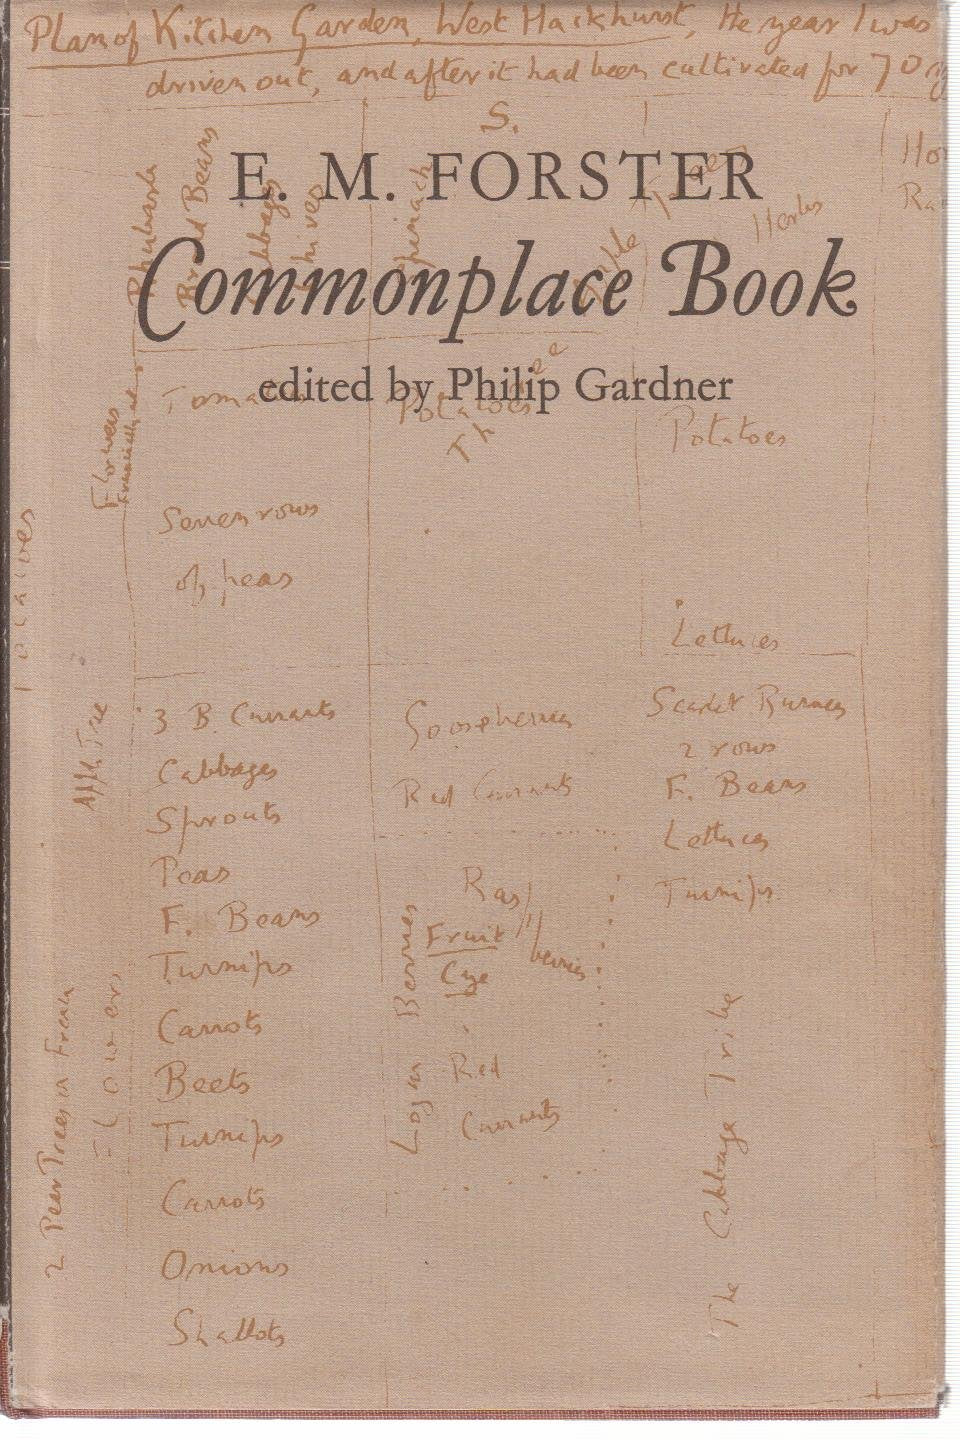 Plan of Kitchen Garden, West Hackhurst, the year I was
driven out, and after it had been cultivated for 70
S.
E. M. FORSTER
Commonplace Book
edited by Philip Gardner
Rhubarb
Broad Beans
Cabbages
Chives
Spinach
Apple Trees
Herbs
Tomatoes
Potatoes
Potatoes
Flowers
Seven rows
of peas
Lettuces
Apple Tree
3 B. Currants
Cabbages
Sprouts
Peas
F. Beans
Turnips
Carrots
Beets
Turnips
Carrots
Onions
Shallots
Gooseberries
Red Currants
Rasp
berries
Fruit
Cage
Logan Berries
Red
Currants
Scarlet Runners
2 rows
F. Beans
Lettuces
Turnips
The Cabbage Tribe
2 Pear Trees in French
Flowers